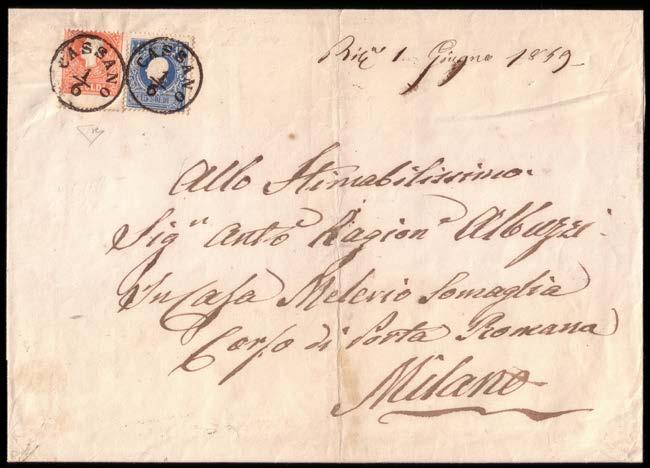 CASSANO
1/6
CASSANO
1/6
15 SOLDI
1 Giugno 1859
Allo Stimabilissimo
Sig.r Anto. Ragion.e Albuzzi
In Casa Melerio Somaglia
Corso di Porta Romana
Milano